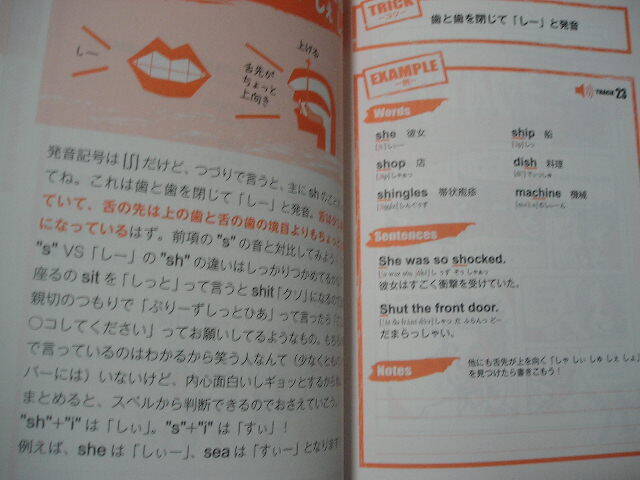 しぇ
しー
舌先が
ちょっと
上向き
上げる
発音記号は[ʃ]だけど、つづりで言うと、主にshのこと
てね。これは歯と歯を閉じて「しー」と発音。
ていて、舌の先は上の歯と舌の歯の境目よりもちょっ
になっているはず。前項の"s"の音と対比してみよう
"s" VS「しー」の"sh"の違いはしっかりつかめてるか
座るのsitを「しっと」って言うとshit「クソ」になるので
親切のつもりで「ぷりーずしっとひあ」って言ったら
〇コしてください」ってお願いしてるようなもの。もちろん
で言っているのはわかるから笑う人なんて(少なくとも
バーには)いないけど、内心面白いしギョッとするから
まとめると、スペルから判断できるのでおさえていこう。
"sh"+"i"は「しぃ」。"s"+"i"は「すぃ」!
例えば、sheは「しぃー」、seaは「すぃー」となります
TRICK
―コツ―
歯と歯を閉じて「しー」と発音
EXAMPLE
―例―
TRACK 23
Words
she 彼女
ship 船
shop 店
dish 料理
shingles 帯状疱疹
machine 機械
Sentences
She was so shocked.
彼女はすごく衝撃を受けていた。
Shut the front door.
だまらっしゃい。
Notes
他にも舌先が上を向く「しゃ しぃ しゅ しぇ しょ」
を見つけたら書きこもう!